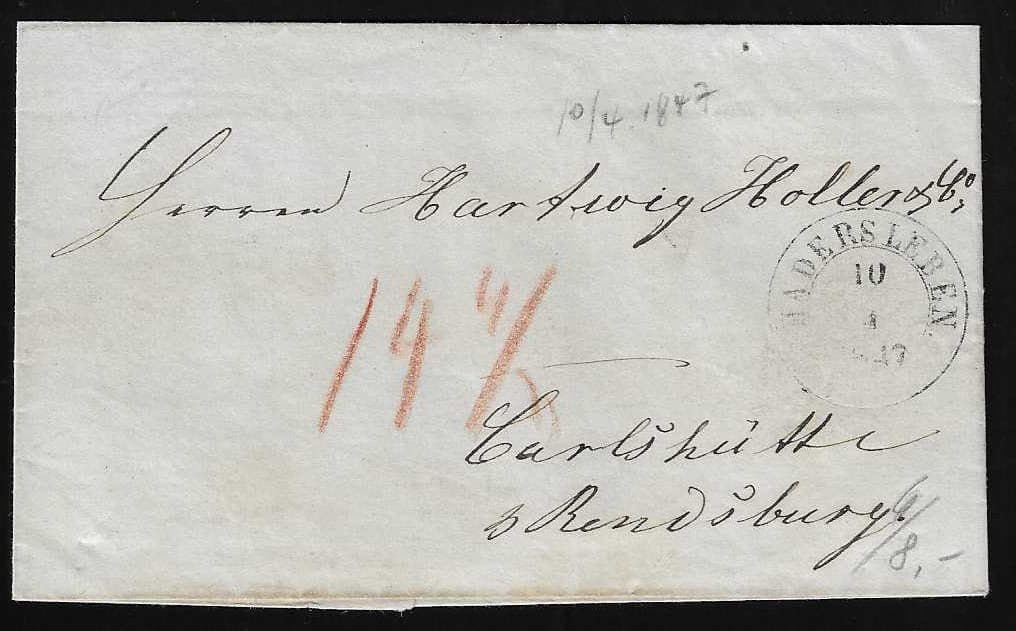 10/4. 1847
Herren Hartwig Holler & Co,
HADERSLEBEN
10
4
14
Carlshütte
Rendsburg.
8,-